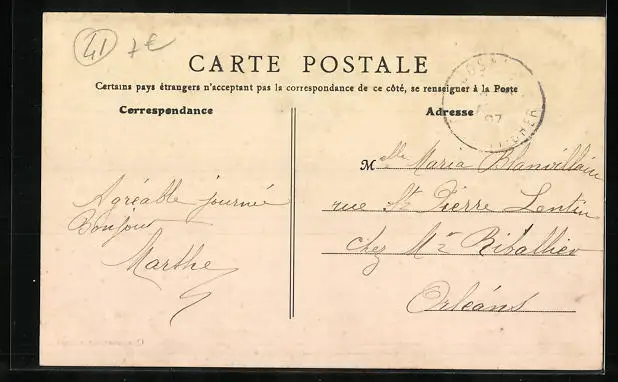 41 7€
CARTE POSTALE
Certains pays étrangers n'acceptant pas la correspondance de ce côté, se renseigner à la Poste
Correspondance
Adresse
CHER
07
Agréable journée
Bonjour
Marthe
Melle Maria Blanvillain
rue St Pierre Lentin
chez Mr Riballier
Orléans